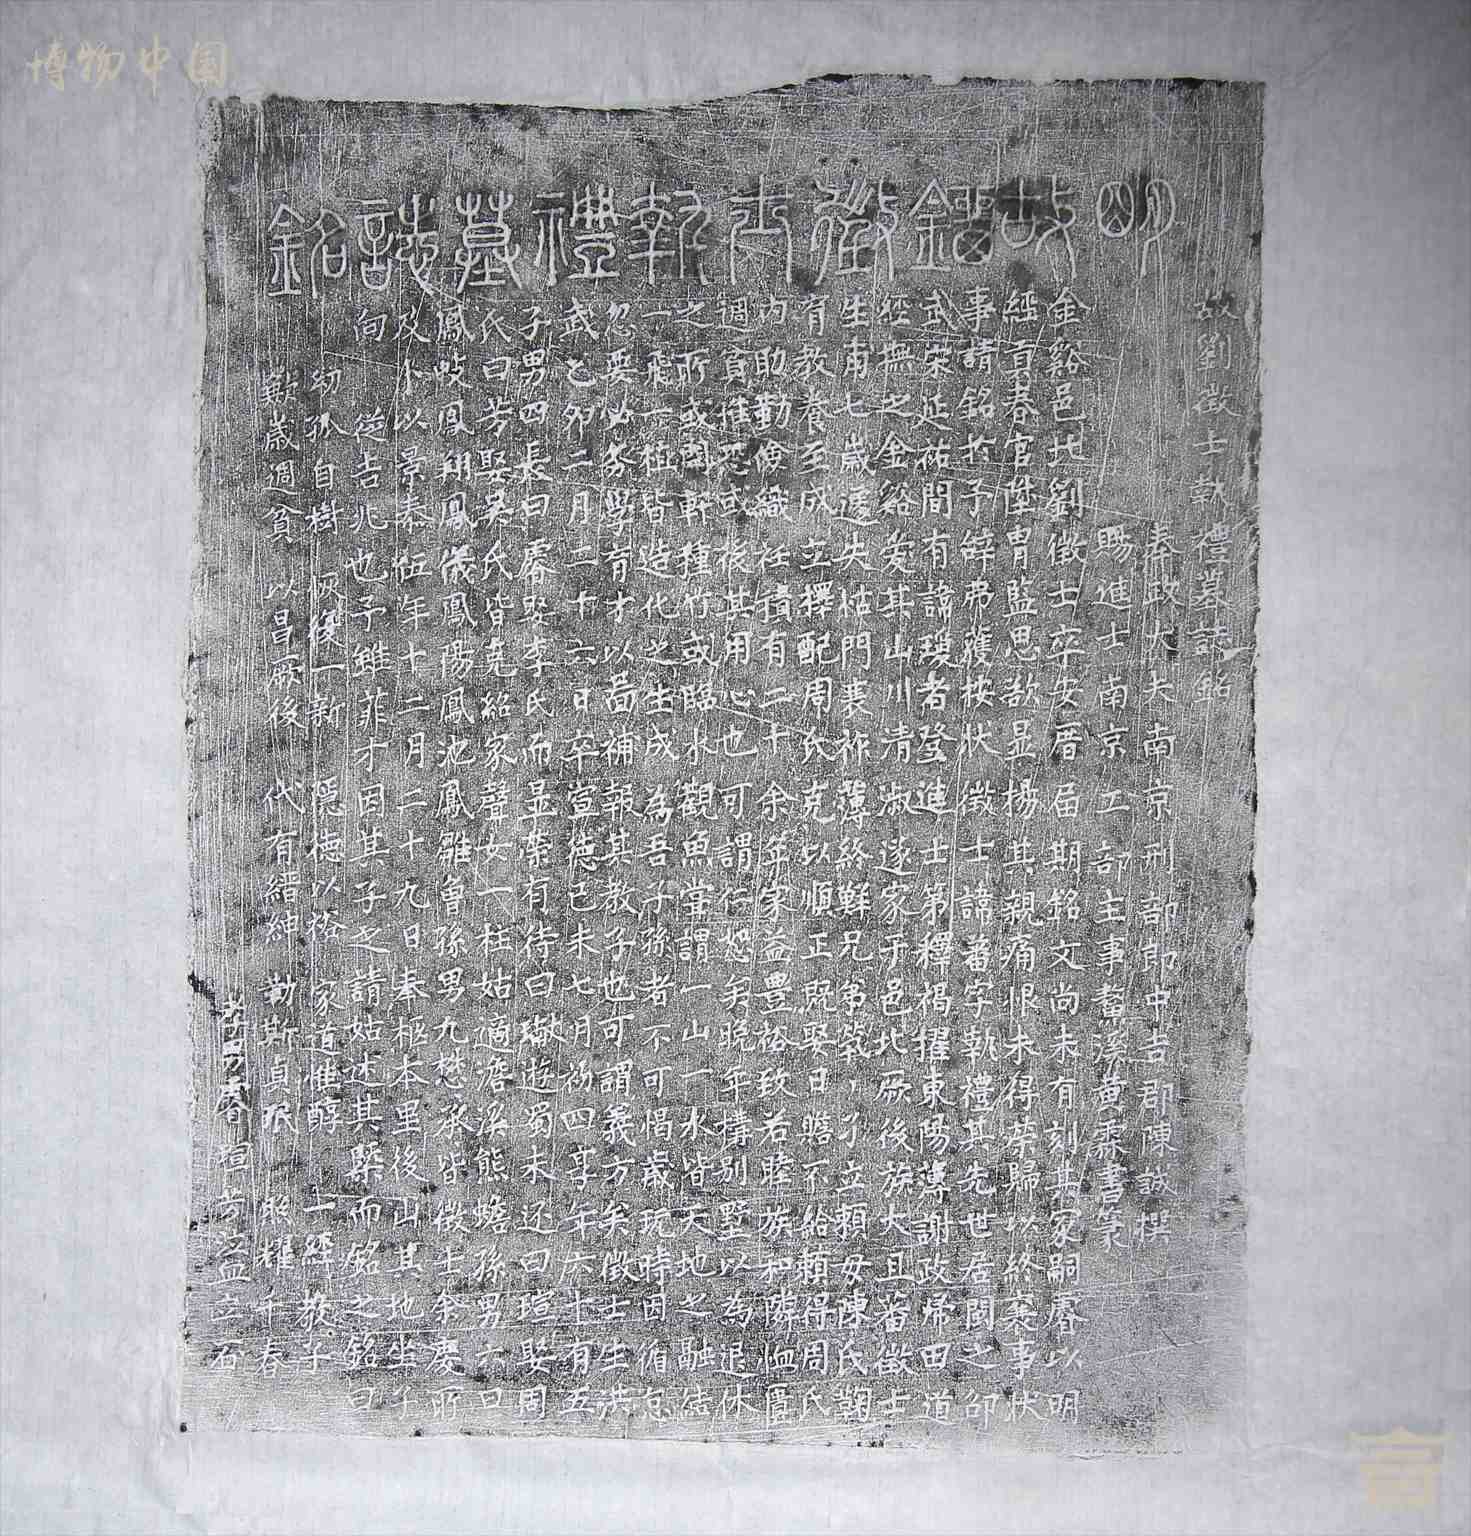 博物中国
明故劉徵士執禮墓誌銘
故劉徵士執禮墓誌銘
奉政大夫南京刑部郎中吉郡陳誠撰
賜進士南京工部主事鰲溪黃霖書篆
金谿邑北劉徵士卒安厝屆期銘文尚未有刻其冢嗣睿以明
經貢春官陞胄監思欲显揚其親痛恨未得荣歸以終喪事狀
事請銘扵予辞弗獲桉狀徵士諱蕃字執禮其先世居閩之邵
武宋延祐間有諱瓊者登進士第釋褐擢東陽簿謝政帰田道
經撫之金谿爰其山川清淑遂家于邑北厥後族大且蕃徵士
生甫七歲遽失怙門衰祚薄終鮮兄弟煢〻孑立頼母陳氏鞠
育教養至成立擇配周氏克以順正既娶日贍不給頼得周氏
内助勤儉織衽積有二十余年家益豊裕致若睦族和隣恤匱
週貧推恐或後其用心也可謂仁恕矣晚年搆别墅以為退休
之所或開軒種竹或臨水觀魚甞謂一山一水皆天地之融结
一飛一植皆造化之生成為吾子孫者不可愒歲玩時因循怠
忽要必务學育才以啚補報其教子也可謂義方矣徵士生洪
武乙夘二月二十六日卒宣德己未七月初四享年六十有五
子男四長曰睿娶李氏而显荣有待曰瓛逰蜀未还曰瑄娶周
氏曰芳娶吴氏皆克紹家聲女一柱姑適澹溪熊蟾孫男六曰
鳳岐鳳翔鳳儀鳳陽鳳池鳳雛曾孫男九懋承皆徵士余慶所
及卜以景泰伍年十二月二十九日奉柩本里後山其地坐子
向 從吉兆也予雖菲才因其子之請姑述其槩而銘之銘曰
初孤自樹 恢復一新 隱德以裕 家道惟醇 一經教子
歉歲週貧 以昌厥後 代有縉紳 勒斯貞珉 照耀千春
孝男睿瑄芳泣血立石